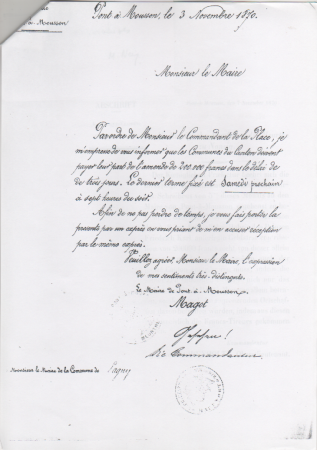 à Mousson
Pont à Mousson, le 3 Novembre 1870.
Monsieur le Maire
Par ordre de Monsieur le Commandant de la Place, je
m'empresse de vous informer que les Communes du Canton doivent
payer leur part de l'amende de 200.000 francs dans le délai de
de trois jours. Le dernier terme fixé est Samedi prochain
à sept heures du soir.
Afin de ne pas perdre de temps, je vous fais porter la
présente par un exprès en vous priant de m'en accuser réception
par le même exprès.
Veuillez agréer, Monsieur le Maire, l'expression
de mes sentiments très distingués.
Le Maire de Pont-à-Mousson,
Maget
Monsieur le Maire de la Commune de Pagny